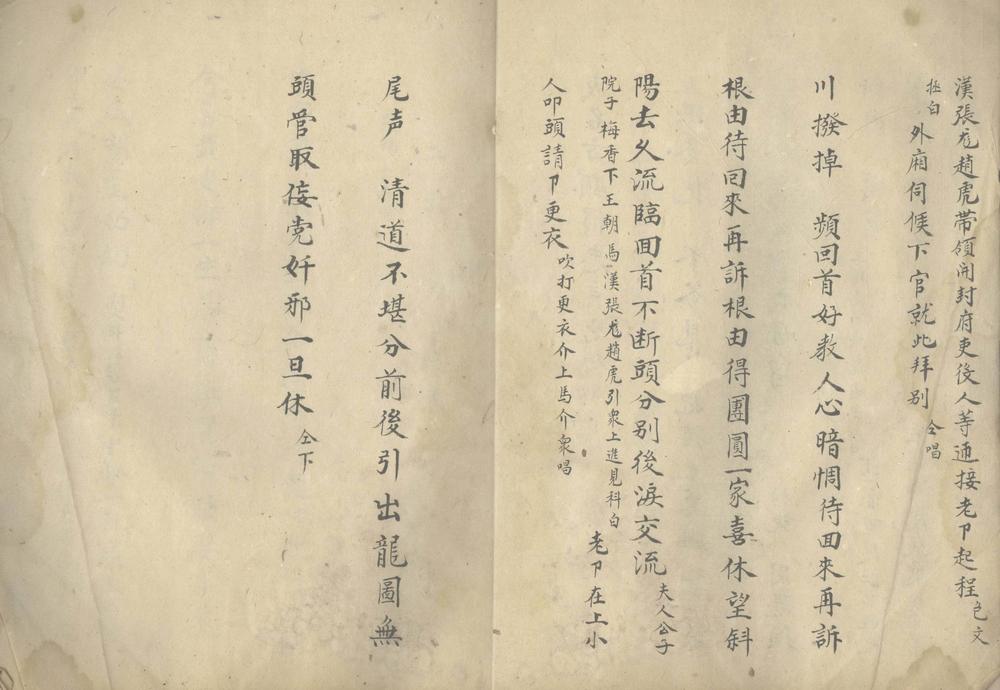 漢張龙趙虎帶領開封府吏役人等迎接老卩起程 包文
拯白 外廂伺候下官就此拜别 仝唱
川撥掉 頻回首好教人心暗惆待回來再訴
根由待回來再訴根由得團圓一家喜休望斜
陽去久流臨回首不断頭分别後淚交流 夫人公子
院子梅香下王朝馬漢張龙趙虎引衆上進見科白 老卩在上小
人叩頭請卩更衣 吹打更衣介上馬介衆唱
尾声 清道不堪分前後引出龍圖無
頭管取侫党奸邪一旦休 仝下